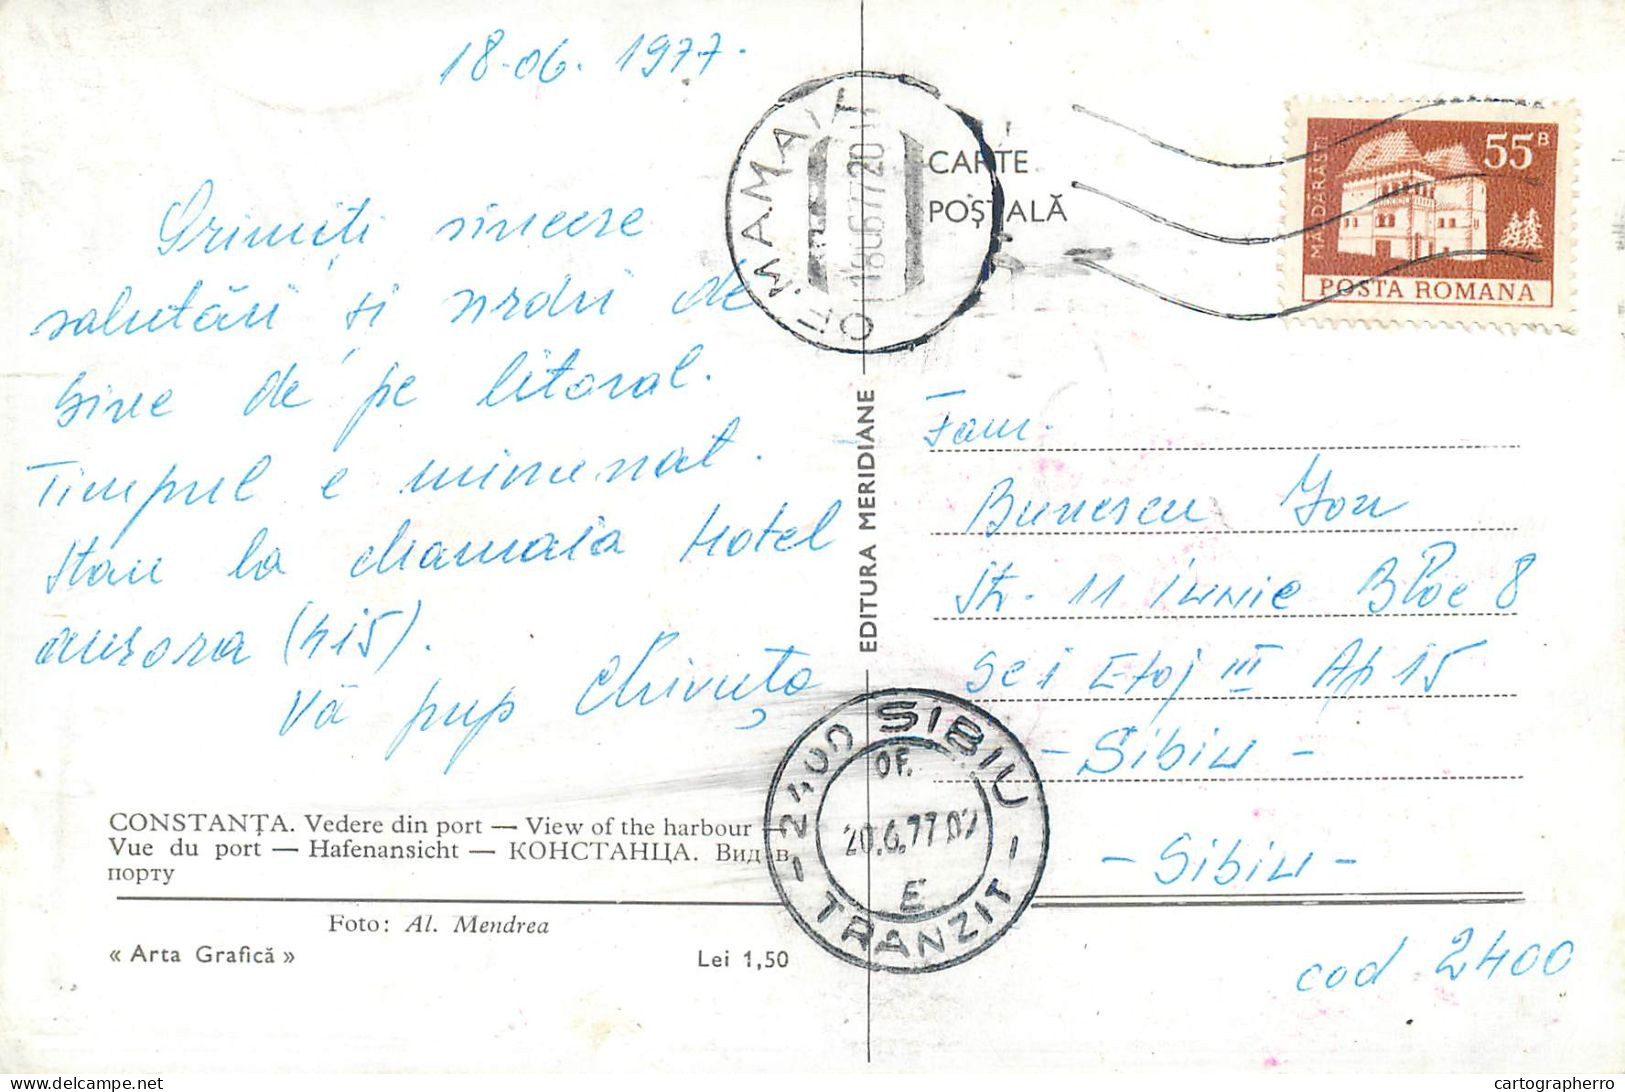 18-06. 1977.
Primiți sincere
salutări și urări de
bine de pe litoral.
Timpul e minunat.
Stau la chamaia Hotel
aurora (415).
Vă pup Chivuța
CONSTANȚA. Vedere din port — View of the harbour —
Vue du port — Hafenansicht — КОНСТАНЦА. Вид в
порту
Foto: Al. Mendrea
« Arta Grafică »
Lei 1,50
EDITURA MERIDIANE
OF. MAMAIA
18.06.77.20
CARTE
POȘTALĂ
MĂLDĂRĂȘTI
55B
POSTA ROMANA
Fam.
Bunescu Ion
Str. 11 iunie Bloc 8
Sc 1 Etaj III Ap 15
- Sibiu -
- Sibiu -
cod 2400
2400 SIBIU
OF.
20.6.77.02
E
TRANZIT
cartographerro